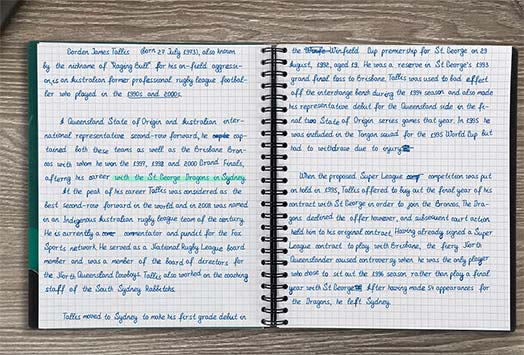 Gorden James Tallis (born 27 July 1973), also known
by the nickname of "Raging Bull" for his on-field aggressi-
on, is an Australian former professional rugby league footbal-
ler who played in the 1990s and 2000s.
A Queensland State of Origin and Australian inter-
national representative second-row forward, he cap-
tained both these teams as well as the Brisbane Bron-
cos with whom he won the 1997, 1998 and 2000 Grand Finals,
afterng his career with the St George Dragons in Sydney.
At the peak of his career Tallis was considered as the
best second-row forward in the world and in 2008 was named
in an Indigenous Australian rugby league team of the century.
He is currently a commentator and pundit for the Fox
Sports network. He served as a National Rugby League board
member and was a member of the board of directors for
the North Queensland Cowboys. Tallis also worked on the coaching
staff of the South Sydney Rabbitohs.
Tallis moved to Sydney to make his first grade debut in
the Winfield Cup premiership for St. George on 29
August, 1992, aged 19. He was a reserve in St George's 1993
grand final loss to Brisbane. Tallis was used to bad effect
off the interchange bench during the 1994 season and also made
his representative debut for the Queensland side in the fi-
nal two State of Origin series games that year. In 1995 he
was included in the Tongan squad for the 1995 World Cup but
had to withdraw due to injury
When the proposed Super League competition was put
on hold in 1995, Tallis offered to buy out the final year of his
contract with St George in order to join the Broncos. The Dra-
gons declined the offer however, and subsequent court action
held him to his original contract. Having already signed a Super
League contract to play with Brisbane, the fiery North
Queenslander caused controversy when he was the only player
who chose to sit out the 1996 season rather than play a final
year with St George. After having made 54 appearances for
the Dragons, he left Sydney.